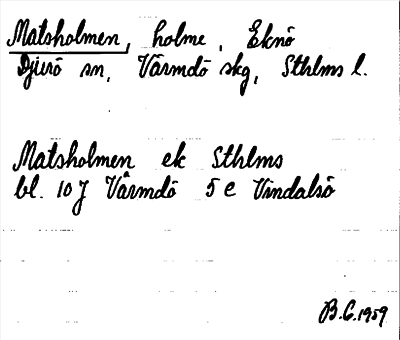 Matsholmen, holme, Eknö
Djurö sn, Värmdö skg, Sthlms l.
Matsholmen ek Sthlms
bl. 10 J Värmdö 5 e Vindalsö
B.G. 1959